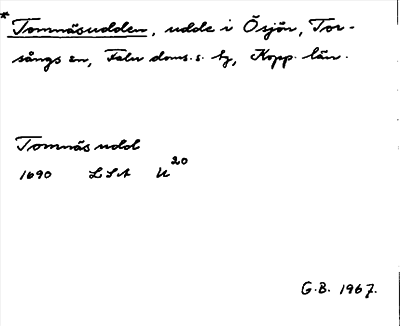 * Tomnäsudden, udde i Ösjön, Tor-
sångs sn, Falu doms. s. by, Kopp. län.
Tomnäs udd
1690 LSA U 20
G.B. 1967.